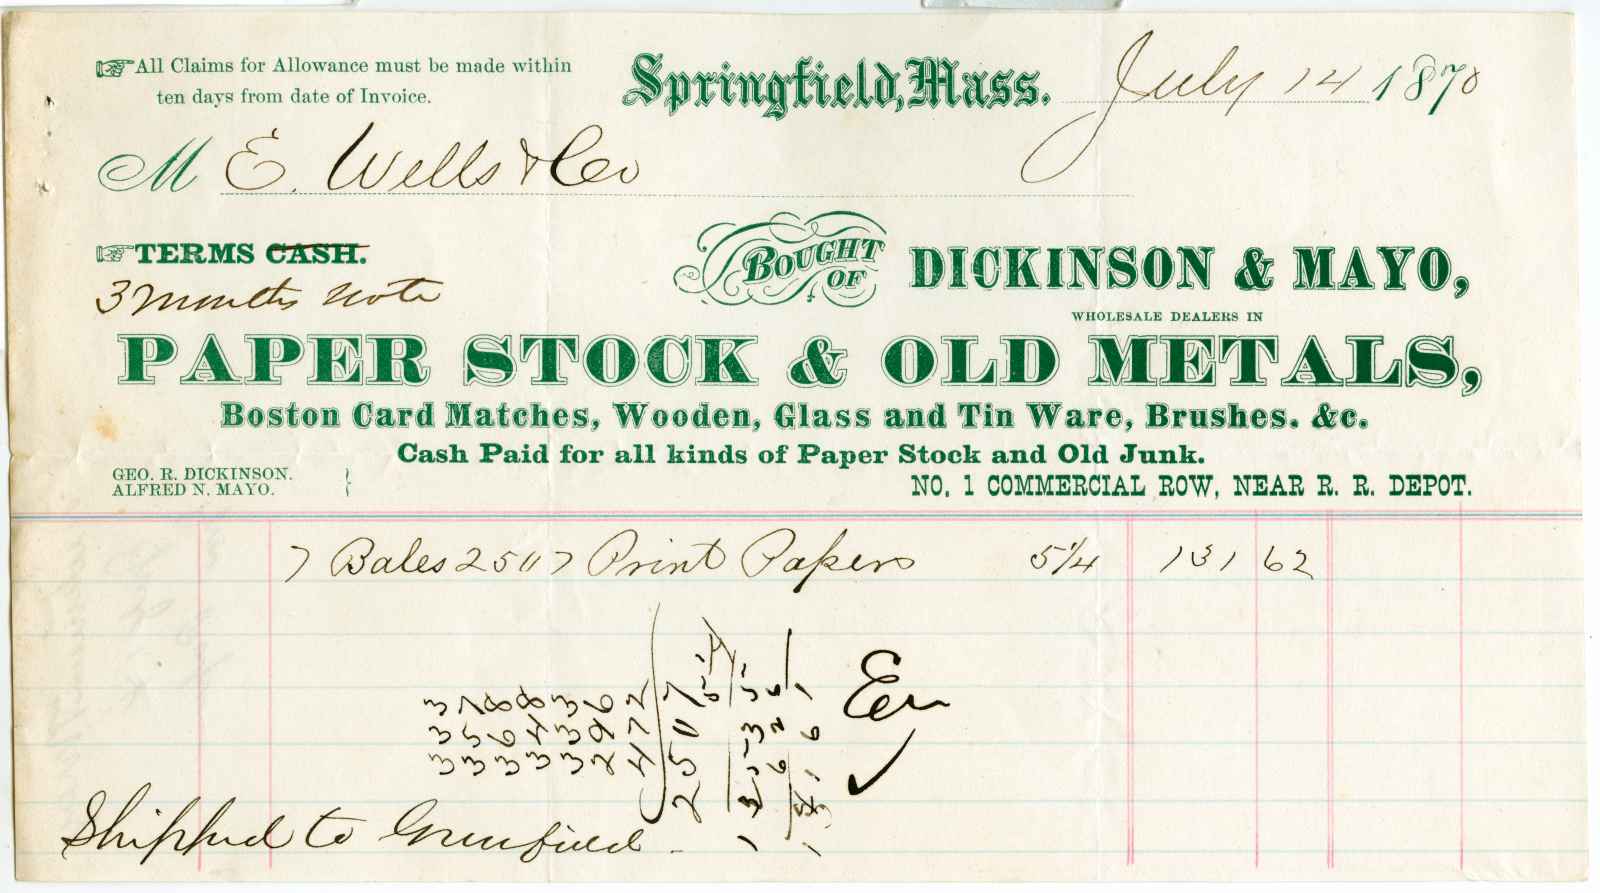 All Claims for Allowance must be made within
ten days from date of Invoice.
Springfield, Mass. July 14 1870
M E. Wells & Co
TERMS CASH.
3 months note
BOUGHT OF DICKINSON & MAYO,
WHOLESALE DEALERS IN
PAPER STOCK & OLD METALS,
Boston Card Matches, Wooden, Glass and Tin Ware, Brushes. &c.
Cash Paid for all kinds of Paper Stock and Old Junk.
GEO. R. DICKINSON.
ALFRED N. MAYO.
NO. 1 COMMERCIAL ROW, NEAR R. R. DEPOT.
7 Bales 2507 Print Papers 5 1/4 131 62
Shipped to Greenfield